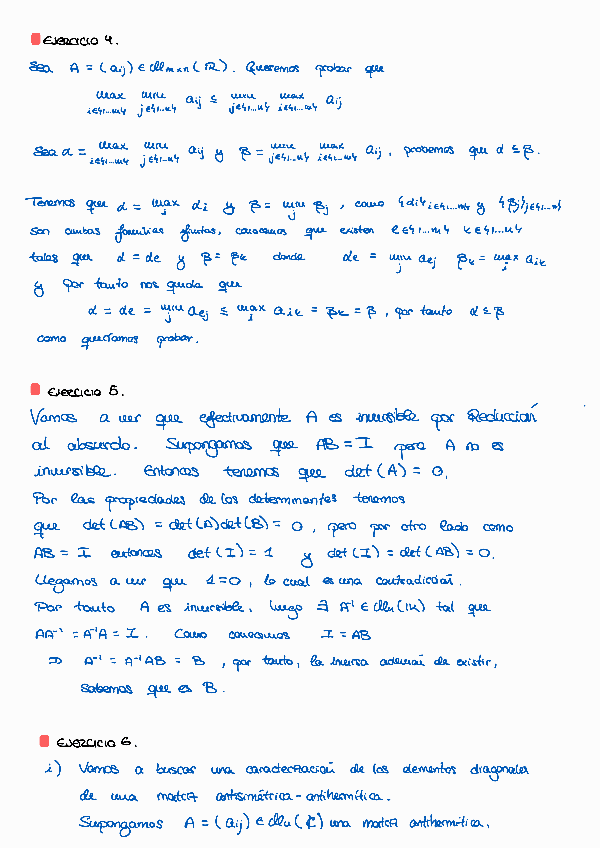 EJERCICIO 4.
Sea A = (aij) ∈ Mmxn(IR). Queremos probar que
max min aij ≤ min max aij
i∈{1...m} j∈{1...n} j∈{1...n} i∈{1...m}
Sea α = max min aij y β = min max aij, probemos que α ≤ β.
i∈{1...m} j∈{1...n} j∈{1...n} i∈{1...m}
Tenemos que α = max αi y β = min βj, como {αi}i∈{1...m} y {βj}j∈{1...n}
i j
son ambas familias finitas, conocemos que existen l∈{1...m} k∈{1...n}
tales que α = αl y β = βk donde αl = min alj βk = max aik
j i
y por tanto nos queda que
α = αl = min alj ≤ max aik = βk = β, por tanto α ≤ β
j i
como queríamos probar.
EJERCICIO 5.
Vamos a ver que efectivamente A es invertible por Reducción
al absurdo. Supongamos que AB = I pero A no es
invertible. Entonces tenemos que det(A) = 0.
Por las propiedades de los determinantes tenemos
que det(AB) = det(A)det(B) = 0, pero por otro lado como
AB = I entonces det(I) = 1 y det(I) = det(AB) = 0.
Llegamos a ver que 1=0, lo cual es una contradicción.
Por tanto A es invertible, luego ∃ A⁻¹ ∈ Mn(IK) tal que
AA⁻¹ = A⁻¹A = I. Como conocemos I = AB
⇒ A⁻¹ = A⁻¹AB = B, por tanto, la inversa además de existir,
sabemos que es B.
EJERCICIO 6.
i) Vamos a buscar una caracterización de los elementos diagonales
de una matriz antisimétrica-antihermítica.
Supongamos A = (aij) ∈ Mn(ℂ) una matriz antihermítica,